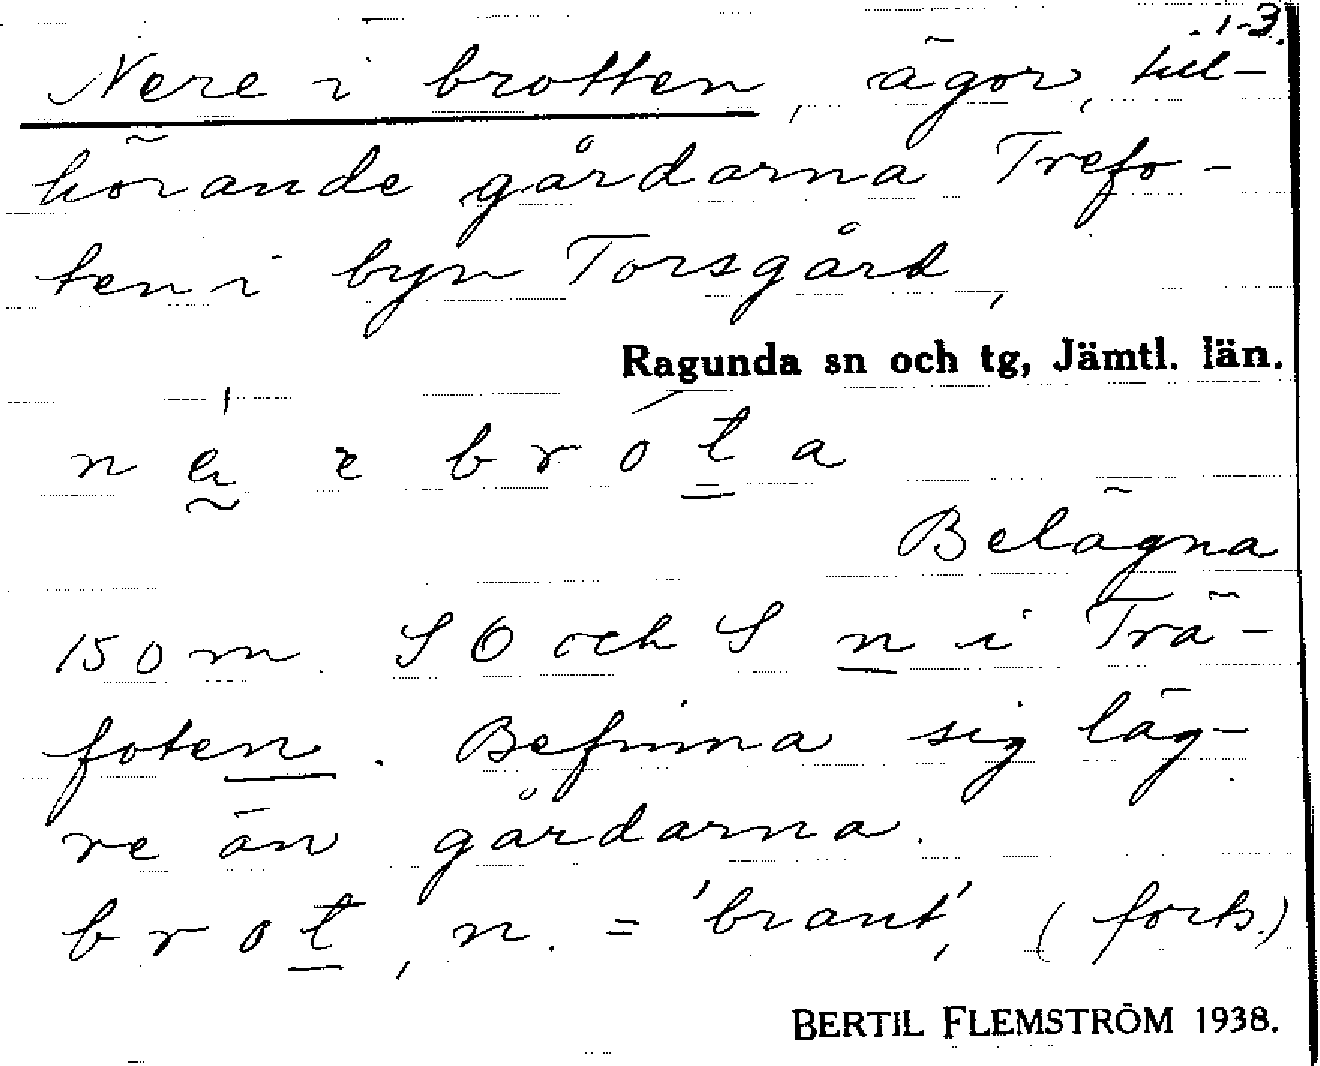 1-3.
Nere i brotten, ägor, till-
hörande gårdarna Trefo-
ten i byn Torsgård,
Ragunda sn och tg, Jämtl. län.
b r ó t a
Belägna
150 m. SO och S n i Trä-
foten. Befinna sig läg-
re än gårdarna.
b r o t, n. = 'brant', (forts.)
BERTIL FLEMSTRÖM 1938.